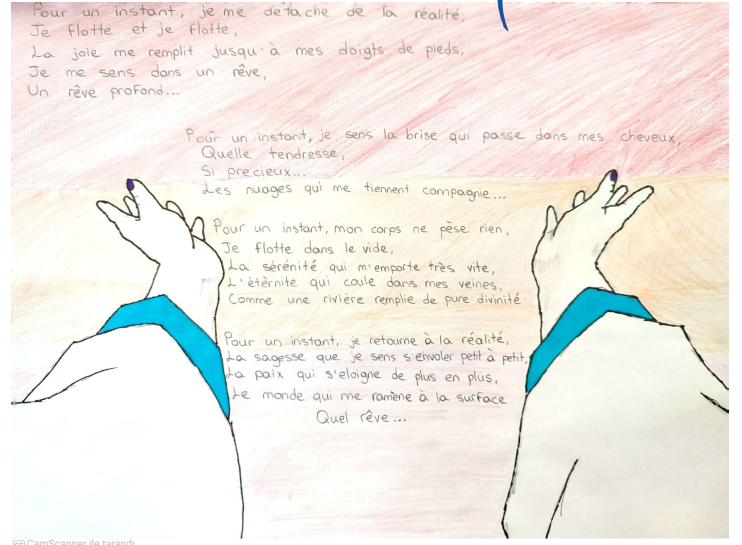 Pour un instant, je me détache de la réalité,
Je flotte et je flotte,
La joie me remplit jusqu'à mes doigts de pieds,
Je me sens dans un rêve,
Un rêve profond...
Pour un instant, je sens la brise qui passe dans mes cheveux,
Quelle tendresse,
Si precieux...
Les nuages qui me tiennent compagnie...
Pour un instant, mon corps ne pèse rien,
Je flotte dans le vide,
La sérénité qui m'emporte très vite,
L'étèrnite qui coule dans mes veines,
Comme une rivière remplie de pure divinité
Pour un instant, je retourne à la réalité,
La sagesse que je sens s'envoler petit à petit,
La paix qui s'eloigne de plus en plus,
Le monde qui me ramène à la surface
Quel rêve...
CamScanner ile tarandı